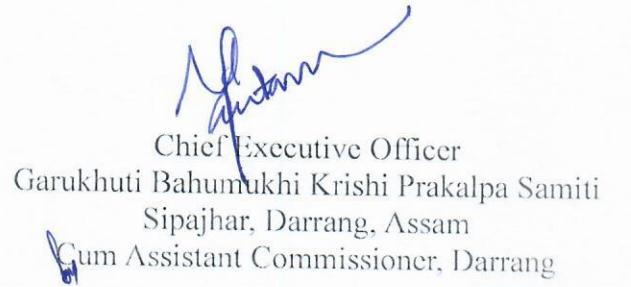 Chief Executive Officer
Garukhuti Bahumukhi Krishi Prakalpa Samiti
Sipajhar, Darrang, Assam
Cum Assistant Commissioner, Darrang